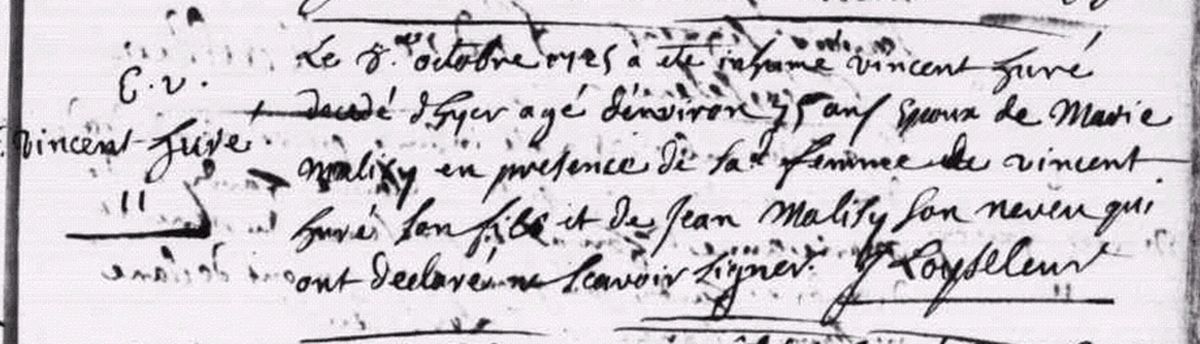 E. v.
vincent huré
11
Le 8. octobre 1725 a été inhumé vincent huré
decedé d'hyer agé d'environ 75 ans Epoux de Marie
Malisy en presence de sad. femme de vincent
huré son fils et de Jean Malisy son neveu qui
ont declaré ne scavoir signer. Loyselleur